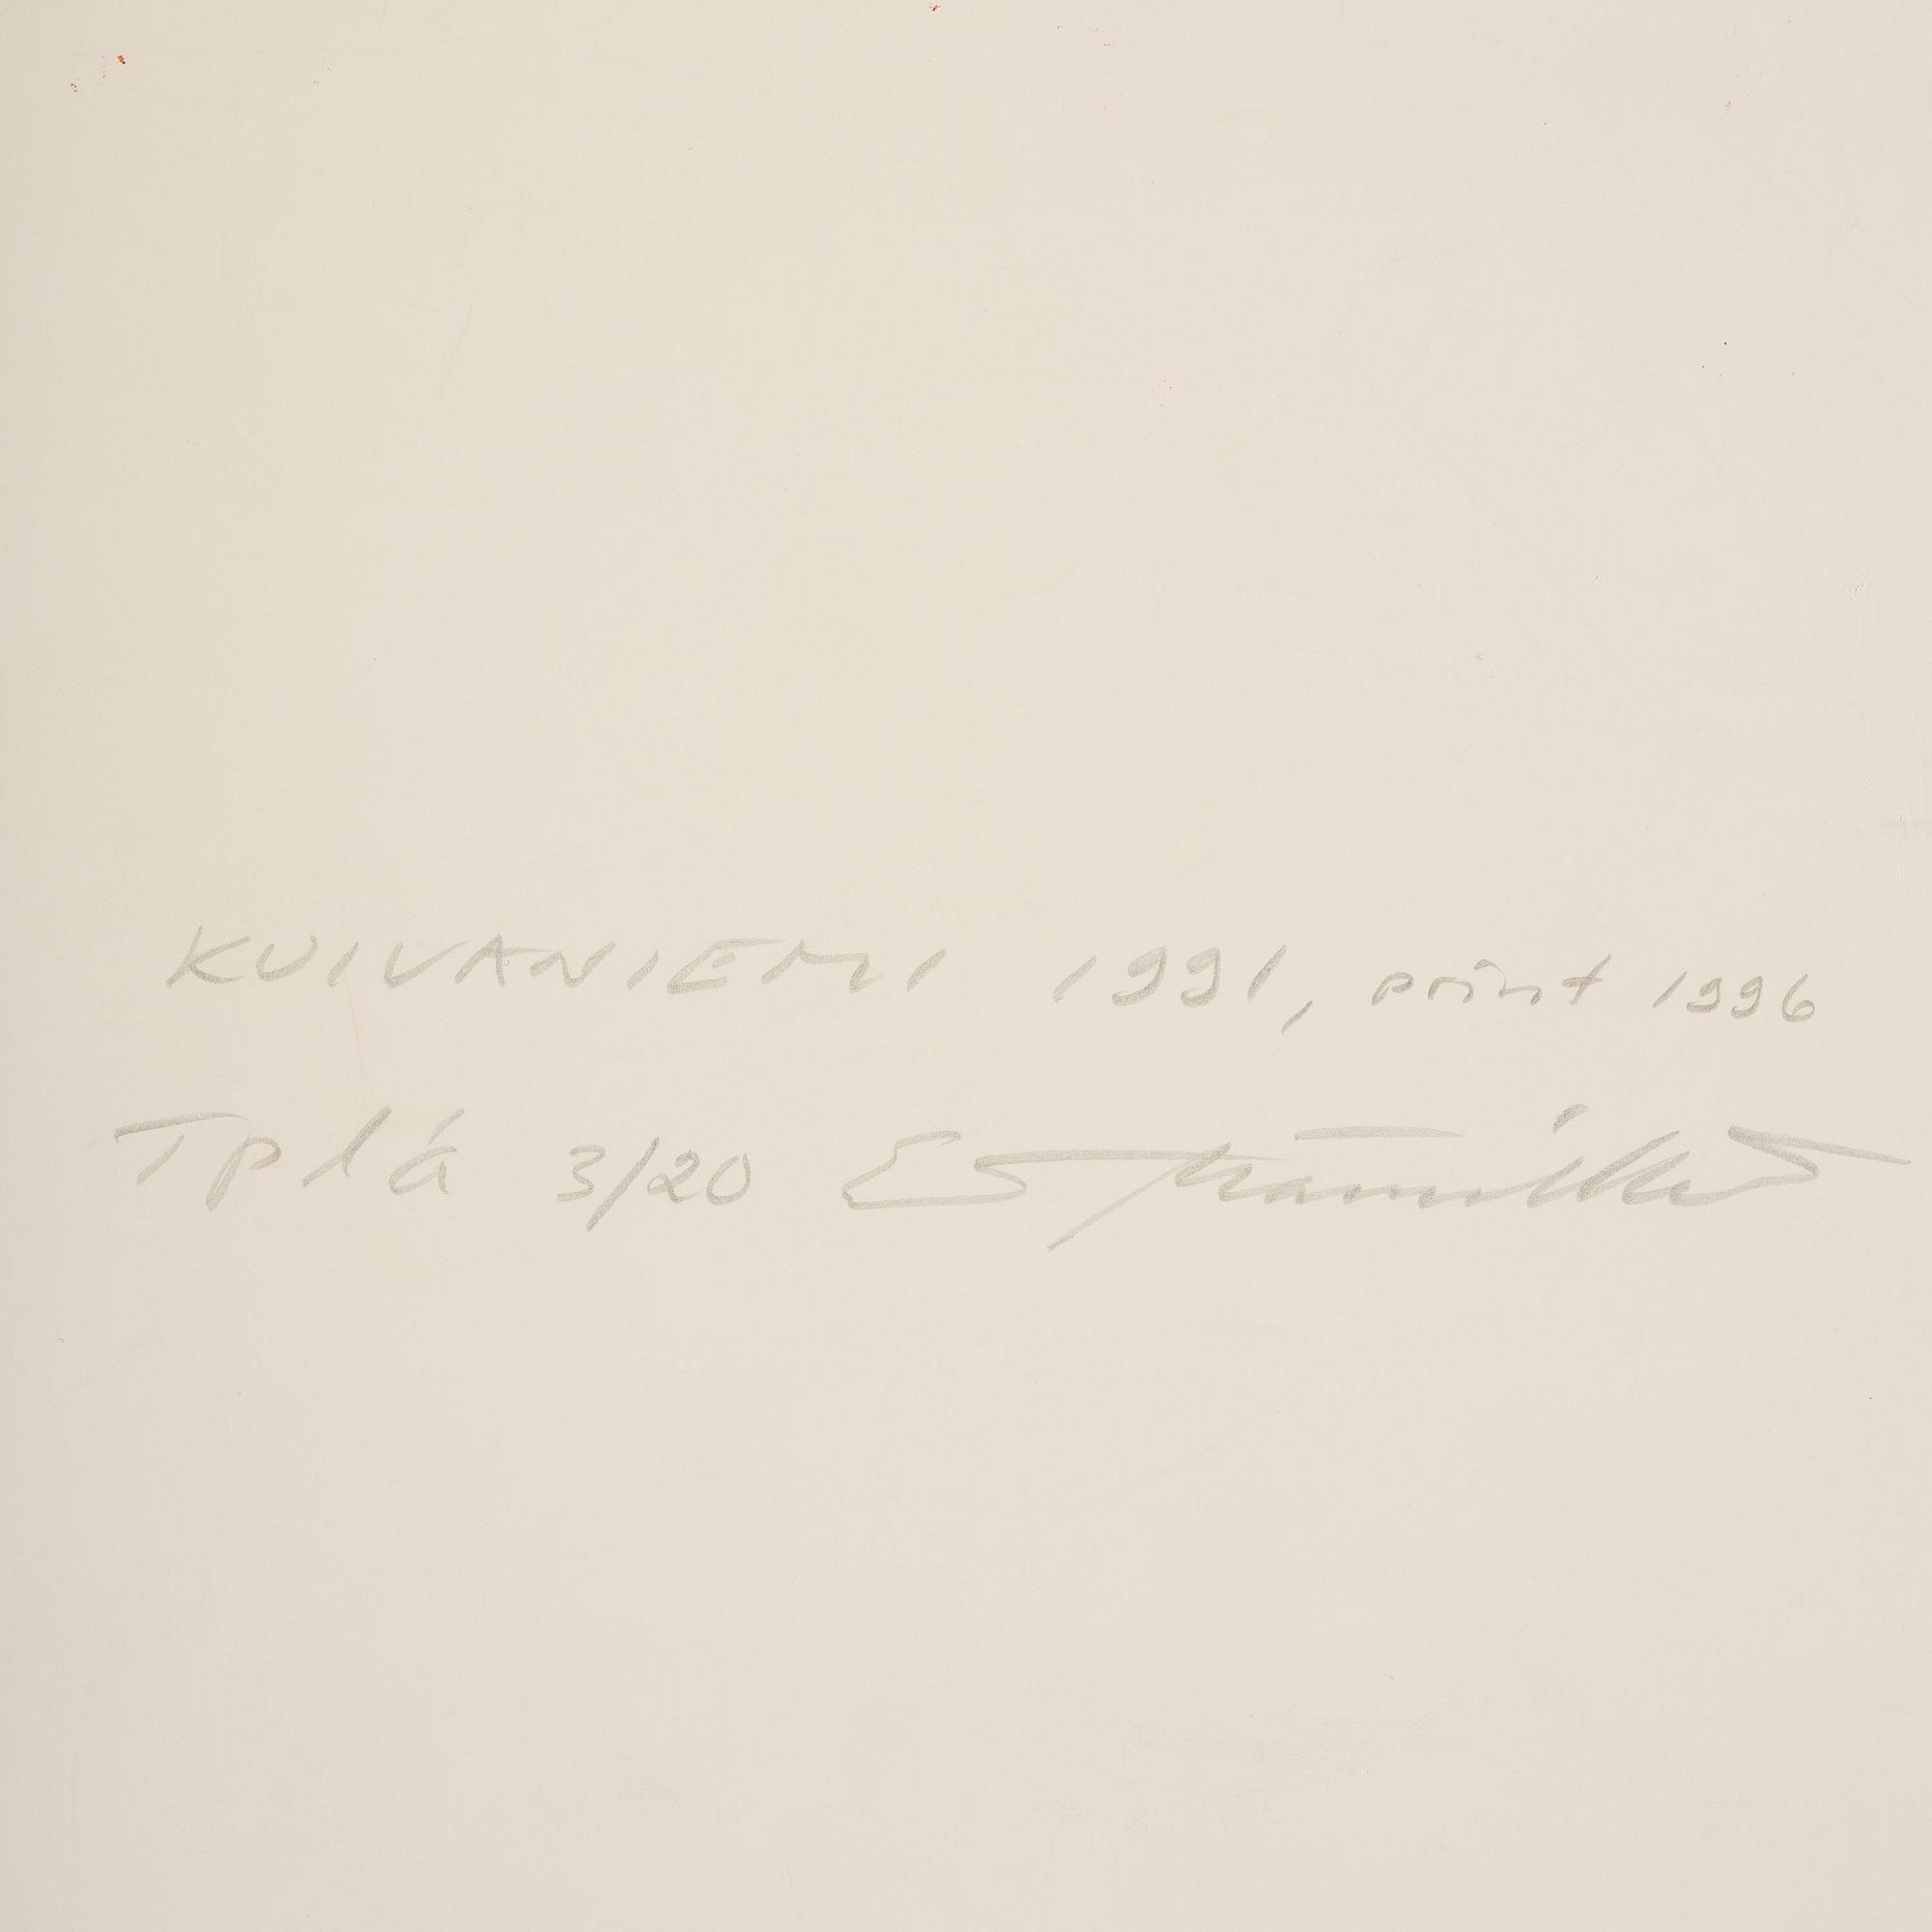 KUIVANIEMI 1991, print 1996
Tpl á 3/20 Esko Männikkö